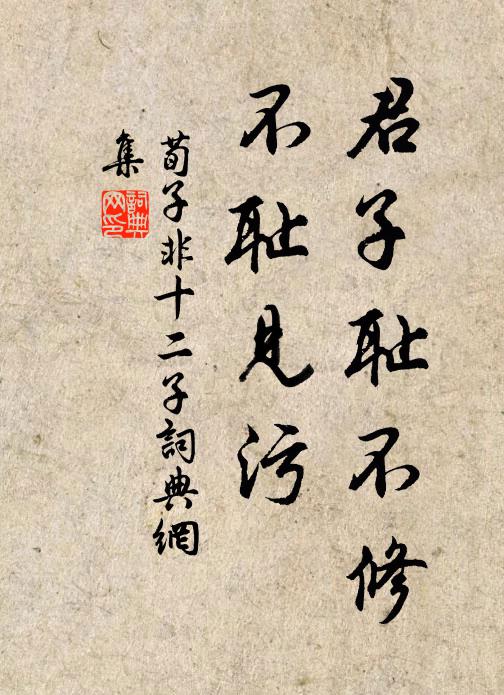 君子耻不修
不耻見污
荀子非十二子詞典網
集
詞典
网印